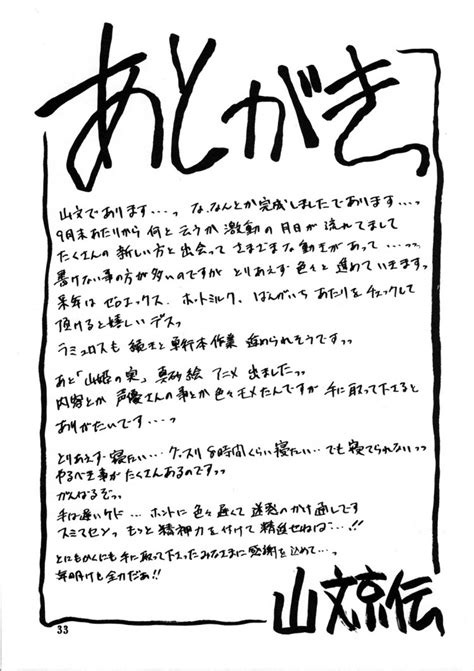 あとがき
山文であります…っ な、なんとか完成しましたであります…っ
9月末あたりから 何と云うか 激動の 月日が 流れてまして
たくさんの 新しい方と 出会って さまざまな 動きがあって…っっ
書けない事の方が 多いのですが とりあえず 色々と 進めていきますっ
来年は ゼロエックス、ホットミルク、ばんがいち あたりを チェックして
頂けると嬉しい デスっ
ラミュロスも 続きと 単行本作業 進められそうですっっ
あと「山姫の実」真砂絵 アニメ 出ましたっっ
内容とか 声優さんの事とか 色々モメたんですが 手に取って下さると
ありがたいです…っ
とりあえず 寝たい… グッスリ 8時間くらい 寝たい… でも 寝てられないっっ
やるべき事が たくさんあるのですっっ
がんばるぞっっ
手は遅いケド… ホントに 色々 遅くて 迷惑のかけ通しです
スミマセンっ もっと 精神力を付けて 精進せねば…っ!!
とにもかくにも 手に取って下さった みなさまに 感謝を込めて…っ
年明けも 全力だぁ!!
山文京伝
33